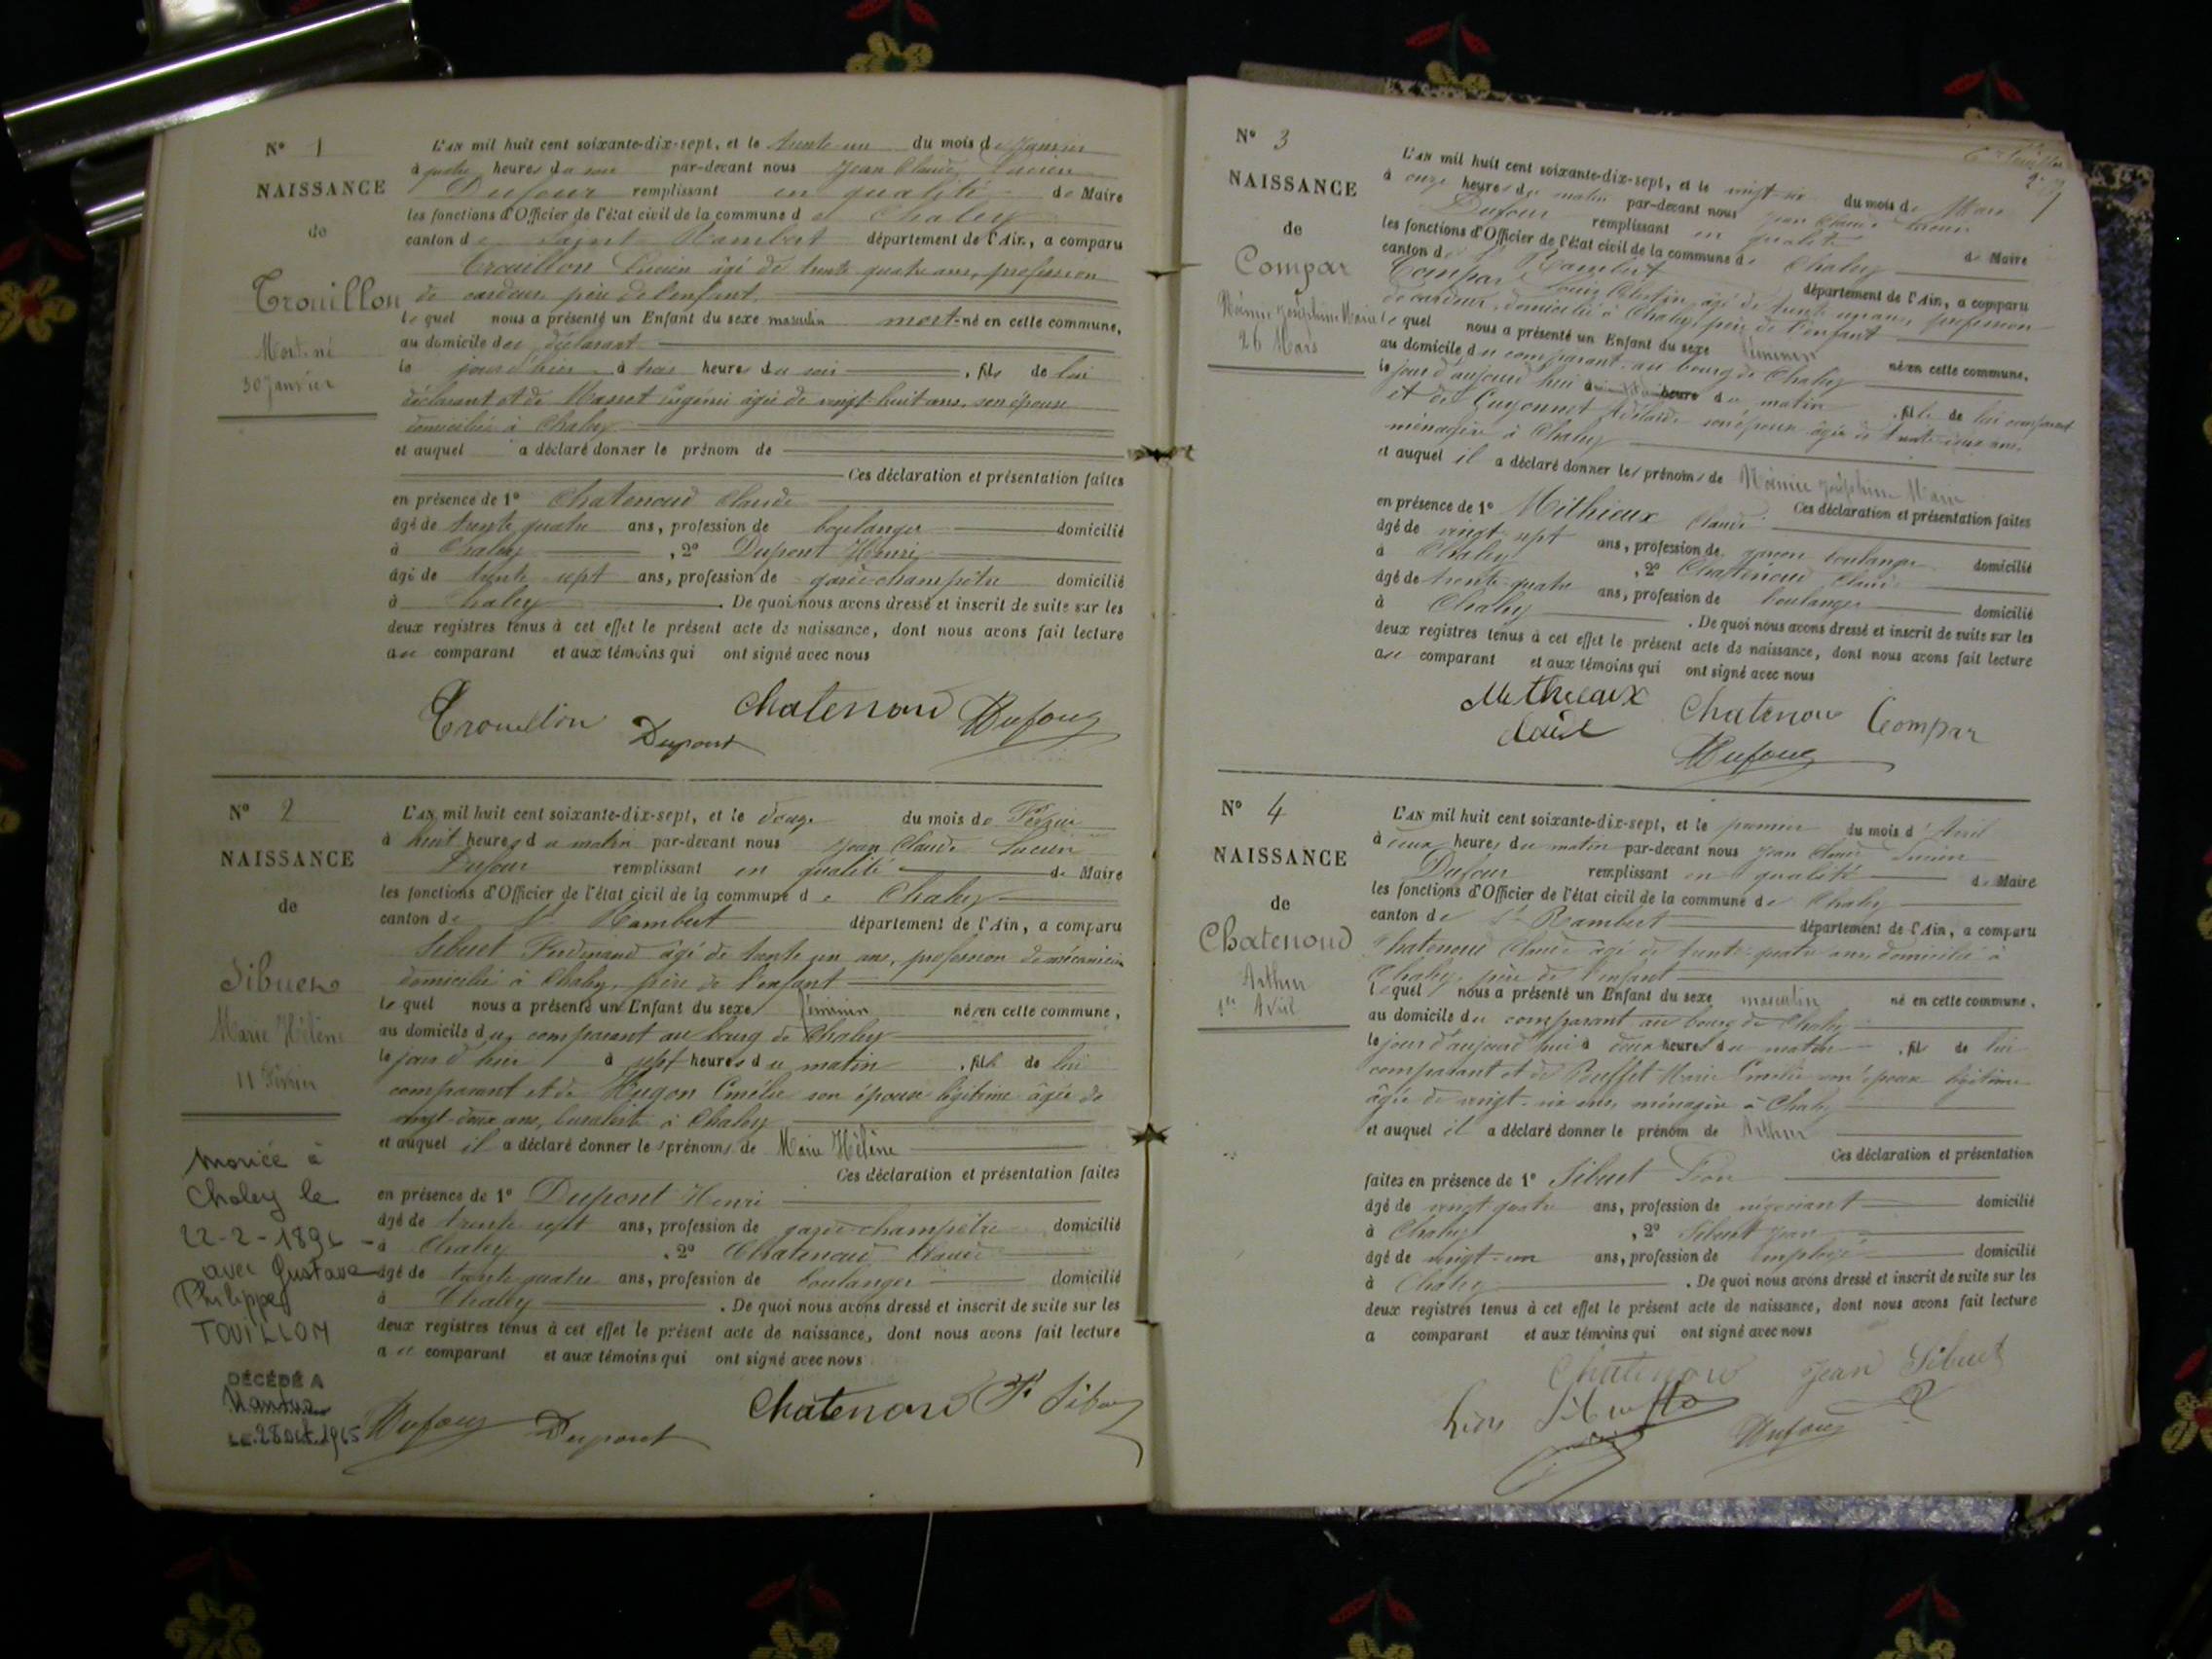 N° 1
NAISSANCE
de
Trouillon
Mort-né
30 Janvier
L'AN mil huit cent soixante-dix-sept, et le trente-un du mois de Janvier
à quatre heures du soir par-devant nous Jean Claude Lucien
Dufour remplissant en qualité de Maire
les fonctions d'Officier de l'état civil de la commune de Chaley
canton de Saint-Rambert département de l'Ain, a comparu
Trouillon Lucien âgé de trente quatre ans, profession
de cardeur, père de l'enfant,
lequel nous a présenté un Enfant du sexe masculin mort-né en cette commune,
au domicile du déclarant
le jour d'hier à trois heures du soir, fils de lui
déclarant et de Masset Eugénie âgée de vingt-huit ans, son épouse
domiciliée à Chaley
et auquel a déclaré donner le prénom de
Ces déclaration et présentation faites
en présence de 1° Chatenoud Claude
âgé de trente quatre ans, profession de boulanger domicilié
à Chaley, 2° Dupont Henri
âgé de trente sept ans, profession de garde-champêtre domicilié
à Chaley. De quoi nous avons dressé et inscrit de suite sur les
deux registres tenus à cet effet le présent acte de naissance, dont nous avons fait lecture
au comparant et aux témoins qui ont signé avec nous
Trouillon Dupont Chatenoud Dufour
N° 2
NAISSANCE
de
Sibuet
Marie Hélène
11 Février
mariée à
Chaley le
22-2-1896
avec Gustave
Philippe
TOUILLON
DÉCÉDÉ A
Nantua
LE 28 Oct. 1965
L'AN mil huit cent soixante-dix-sept, et le douze du mois de Février
à huit heures du matin par-devant nous Jean Claude Lucien
Dufour remplissant en qualité de Maire
les fonctions d'Officier de l'état civil de la commune de Chaley
canton de St Rambert département de l'Ain, a comparu
Sibuet Ferdinand âgé de trente un ans, profession de mécanicien
domicilié à Chaley, père de l'enfant
lequel nous a présenté un Enfant du sexe féminin née en cette commune,
au domicile du comparant au bourg de Chaley
le jour d'hier à sept heures du matin, fille de lui
comparant et de Hugon Emélie son épouse légitime âgée de
vingt-deux ans, à Chaley
et auquel il a déclaré donner les prénoms de Marie Hélène
Ces déclaration et présentation faites
en présence de 1° Dupont Henri
âgé de trente sept ans, profession de garde-champêtre domicilié
à Chaley, 2° Chatenoud Claude
âgé de trente quatre ans, profession de boulanger domicilié
à Chaley. De quoi nous avons dressé et inscrit de suite sur les
deux registres tenus à cet effet le présent acte de naissance, dont nous avons fait lecture
au comparant et aux témoins qui ont signé avec nous
Dufour Dupont Chatenoud Fd Sibuet
N° 3
NAISSANCE
de
Compar
Noémie Joséphine Marie
26 Mars
L'AN mil huit cent soixante-dix-sept, et le vingt-six du mois de Mars
à onze heures du matin par-devant nous Jean Claude Lucien
Dufour remplissant en qualité de Maire
les fonctions d'Officier de l'état civil de la commune de Chaley
canton de St Rambert département de l'Ain, a comparu
Compar Louis Célestin, âgé de trente un ans, profession
de cardeur, domicilié à Chaley, père de l'enfant
lequel nous a présenté un Enfant du sexe féminin née en cette commune,
au domicile du comparant au bourg de Chaley
le jour d'aujourd'hui à heure du matin, fille de lui comparant
et de Guyonnet Adélaïde son épouse âgée de trente-deux ans,
ménagère à Chaley
et auquel il a déclaré donner les prénoms de Noémie Joséphine Marie
Ces déclaration et présentation faites
en présence de 1° Mithieux Claude
âgé de vingt sept ans, profession de garçon boulanger domicilié
à Chaley, 2° Chatenoud Claude
âgé de trente-quatre ans, profession de boulanger domicilié
à Chaley. De quoi nous avons dressé et inscrit de suite sur les
deux registres tenus à cet effet le présent acte de naissance, dont nous avons fait lecture
au comparant et aux témoins qui ont signé avec nous
Chatenoud Compar
Dufour
N° 4
NAISSANCE
de
Chatenoud
Arthur
1er Avril
L'AN mil huit cent soixante-dix-sept, et le premier du mois d'Avril
à deux heures du matin par-devant nous Jean Claude Lucien
Dufour remplissant en qualité de Maire
les fonctions d'Officier de l'état civil de la commune de Chaley
canton de St Rambert département de l'Ain, a comparu
Chatenoud Claude âgé de trente-quatre ans, domicilié à
Chaley, père de l'enfant
lequel nous a présenté un Enfant du sexe masculin né en cette commune,
au domicile du comparant au bourg de Chaley
le jour d'aujourd'hui à deux heures du matin, fils de lui
comparant et de Buffet Marie Emélie son épouse légitime
âgée de vingt-six ans, ménagère à Chaley
et auquel il a déclaré donner le prénom de Arthur
Ces déclaration et présentation
faites en présence de 1° Sibuet Léon
âgé de vingt quatre ans, profession de négociant domicilié
à Chaley, 2° Sibuet Jean
âgé de vingt-un ans, profession de employé domicilié
à Chaley. De quoi nous avons dressé et inscrit de suite sur les
deux registres tenus à cet effet le présent acte de naissance, dont nous avons fait lecture
a comparant et aux témoins qui ont signé avec nous
Chatenoud Jean Sibuet
Léon Sibuet Dufour